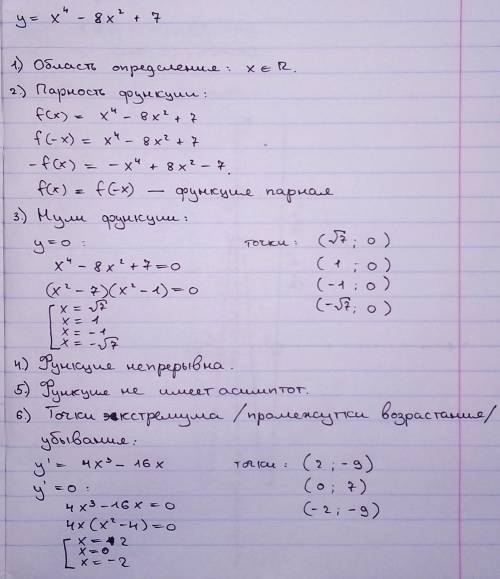 y = x⁴ - 8x² + 7
1) Область определения: x ∈ R.
2) Парность функции:
f(x) = x⁴ - 8x² + 7
f(-x) = x⁴ - 8x² + 7
-f(x) = -x⁴ + 8x² - 7.
f(x) = f(-x) — функция парная
3) Нули функции:
y=0: точки: (√7; 0)
x⁴ - 8x² + 7 = 0 (1; 0)
(x² - 7)(x² - 1) = 0 (-1; 0)
x = √7 (-√7; 0)
x = 1
x = -1
x = -√7
4) Функция непрерывна.
5) Функция не имеет асимптот.
6) Точки экстремума / промежутки возрастания/
убывания:
y' = 4x³ - 16x точки: (2; -9)
y' = 0: (0; 7)
4x³ - 16x = 0 (-2; -9)
4x(x² - 4) = 0
x = 2
x = 0
x = -2